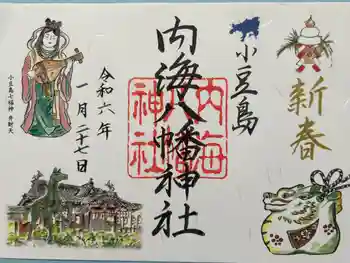 新春
小豆島
内海八幡神社
内海
八幡
神社
令和六年
一月二十七日
小豆島七福神 弁財天